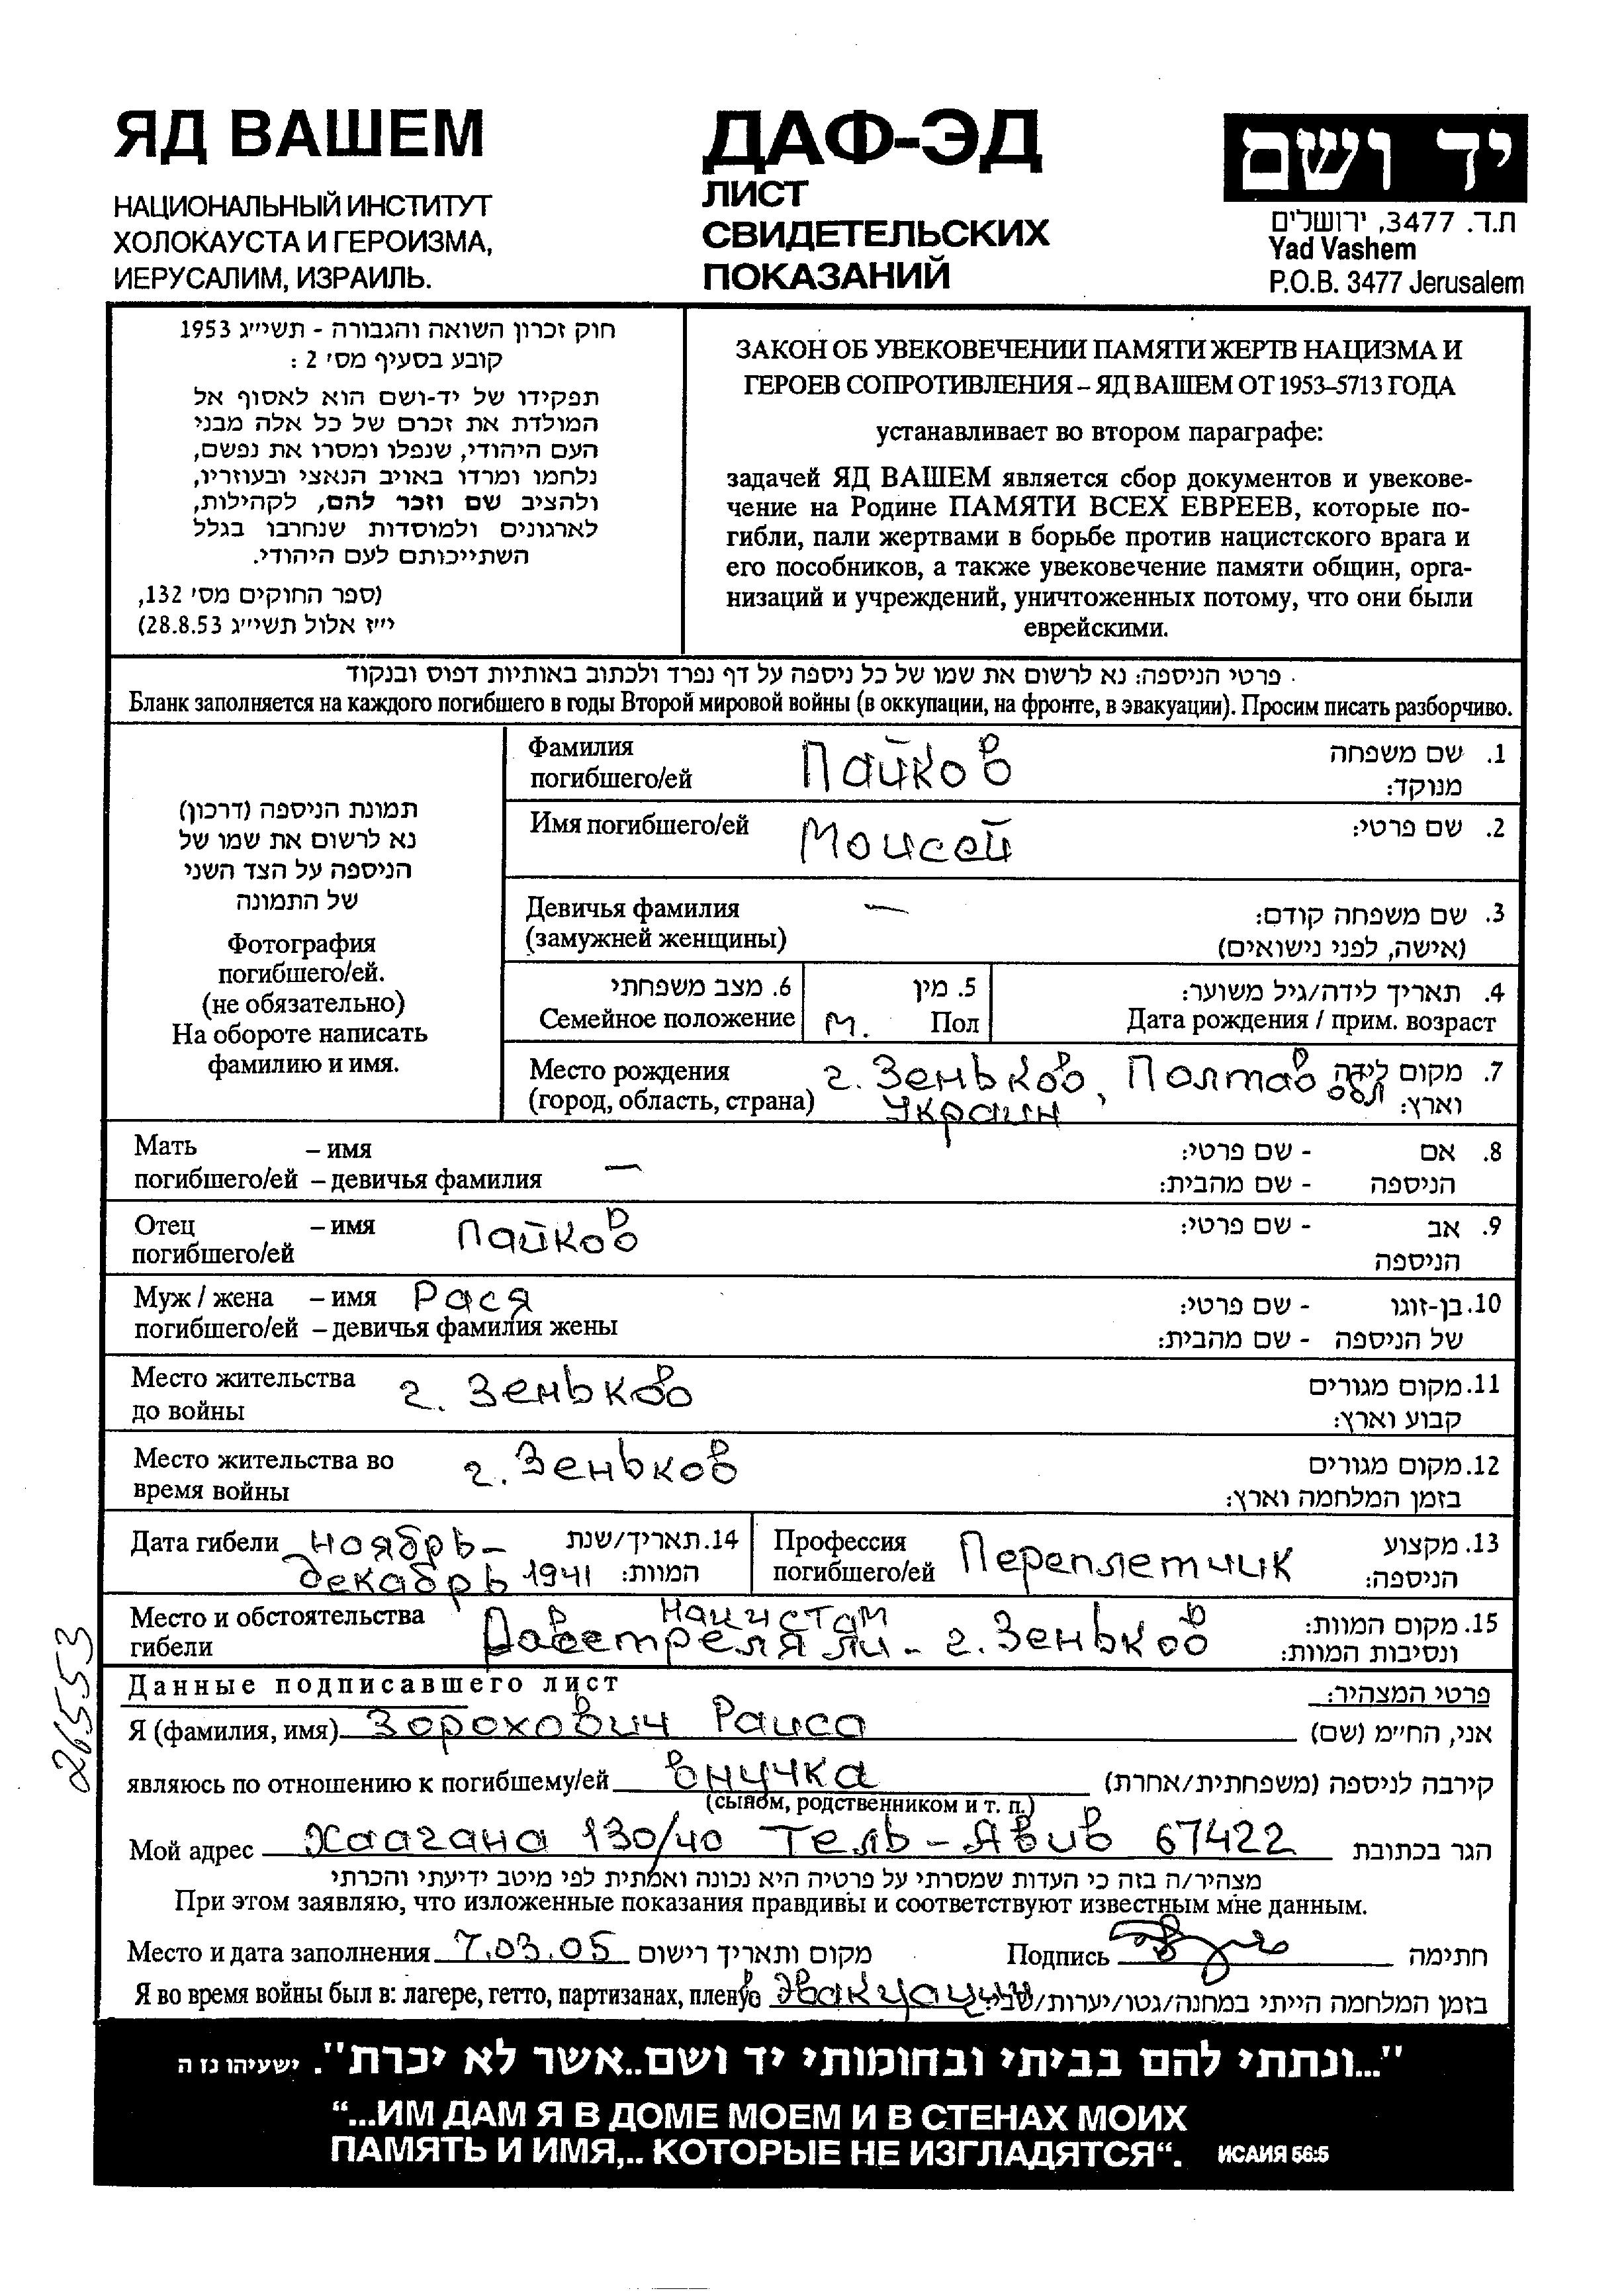 ЯД ВАШЕМ
НАЦИОНАЛЬНЫЙ ИНСТИТУТ
ХОЛОКАУСТА И ГЕРОИЗМА,
ИЕРУСАЛИМ, ИЗРАИЛЬ.
ДАФ-ЭД
ЛИСТ
СВИДЕТЕЛЬСКИХ
ПОКАЗАНИЙ
יד ושם
ת.ד. 3477, ירושלים
Yad Vashem
P.O.B. 3477 Jerusalem
חוק זכרון השואה והגבורה - תשי״ג 1953
קובע בסעיף מס׳ 2 :
תפקידו של יד-ושם הוא לאסוף אל
המולדת את זכרם של כל אלה מבני
העם היהודי, שנפלו ומסרו את נפשם,
נלחמו ומרדו באויב הנאצי ובעוזריו,
ולהציב שם וזכר להם, לקהילות,
לארגונים ולמוסדות שנחרבו בגלל
השתייכותם לעם היהודי.
(ספר החוקים מס׳ 132,
י״ז אלול תשי״ג 28.8.53)
ЗАКОН ОБ УВЕКОВЕЧЕНИИ ПАМЯТИ ЖЕРТВ НАЦИЗМА И
ГЕРОЕВ СОПРОТИВЛЕНИЯ – ЯД ВАШЕМ ОТ 1953–5713 ГОДА
устанавливает во втором параграфе:
задачей ЯД ВАШЕМ является сбор документов и увекове-
чение на Родине ПАМЯТИ ВСЕХ ЕВРЕЕВ, которые по-
гибли, пали жертвами в борьбе против нацистского врага и
его пособников, а также увековечение памяти общин, орга-
низаций и учреждений, уничтоженных потому, что они были
еврейскими.
פרטי הניספה: נא לרשום את שמו של כל ניספה על דף נפרד ולכתוב באותיות דפוס ובנקוד
Бланк заполняется на каждого погибшего в годы Второй мировой войны (в оккупации, на фронте, в эвакуации). Просим писать разборчиво.
תמונת הניספה (דרכון)
נא לרשום את שמו של
הניספה על הצד השני
של התמונה
Фотография
погибшего/ей.
(не обязательно)
На обороте написать
фамилию и имя.
Фамилия Пайков 1. שם משפחה
погибшего/ей מנוקד:
Имя погибшего/ей Моисей 2. שם פרטי:
Девичья фамилия — 3. שם משפחה קודם:
(замужней женщины) (אישה, לפני נישואים)
6. מצב משפחתי 5. מין 4. תאריך לידה/גיל משוער:
Семейное положение М. Пол Дата рождения / прим. возраст
Место рождения г. Зеньков, Полтав обл 7. מקום לידה
(город, область, страна) Украин וארץ:
Мать – имя 8. אם - שם פרטי:
погибшего/ей – девичья фамилия — הניספה - שם מהבית:
Отец – имя Пайков 9. אב - שם פרטי:
погибшего/ей הניספה
Муж / жена – имя Рася 10. בן-זוגו - שם פרטי:
погибшего/ей – девичья фамилия жены של הניספה - שם מהבית:
Место жительства г. Зеньков 11. מקום מגורים
до войны קבוע וארץ:
Место жительства во г. Зеньков 12. מקום מגורים
время войны בזמן המלחמה וארץ:
Дата гибели ноябрь- 14. תאריך/שנת
декабрь 1941 המוות:
Профессия Переплетчик 13. מקצוע
погибшего/ей הניספה:
Место и обстоятельства нацистам 15. מקום המוות:
гибели Расстреляли - г. Зеньков ונסיבות המוות:
Данные подписавшего лист פרטי המצהיר:
Я (фамилия, имя) Зорохович Раиса אני, הח״מ (שם)
являюсь по отношению к погибшему/ей внучка קירבה לניספה (משפחתית/אחרת)
(сыном, родственником и т. п.)
Мой адрес Хаагана 130/40 Тель-Авив 67422 הגר בכתובת
מצהיר/ה בזה כי העדות שמסרתי על פרטיה היא נכונה ואמתית לפי מיטב ידיעתי והכרתי
При этом заявляю, что изложенные показания правдивы и соответствуют известным мне данным.
Место и дата заполнения 7.03.05 מקום ותאריך רישום Подпись חתימה
Я во время войны был в: лагере, гетто, партизанах, плену в эвакуации בזמן המלחמה הייתי במחנה/גטו/יערות/שבי:
26553
"...ונתתי להם בביתי ובחומותי יד ושם..אשר לא יכרת". ישעיהו נז ה
“...ИМ ДАМ Я В ДОМЕ МОЕМ И В СТЕНАХ МОИХ
ПАМЯТЬ И ИМЯ,.. КОТОРЫЕ НЕ ИЗГЛАДЯТСЯ“. ИСАИЯ 56:5